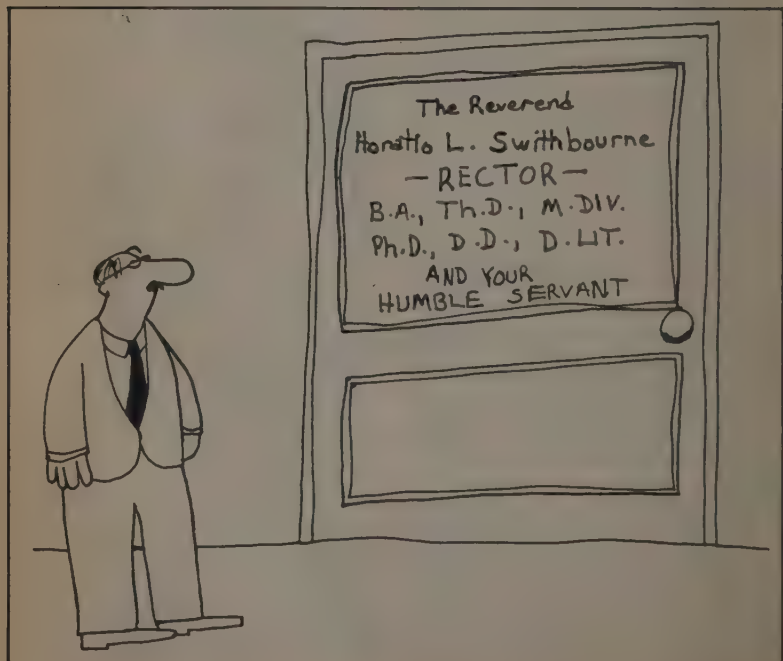 The Reverend
Horatio L. Swithbourne
— RECTOR —
B.A., Th.D., M.DIV.
Ph.D., D.D., D.LIT.
AND YOUR
HUMBLE SERVANT